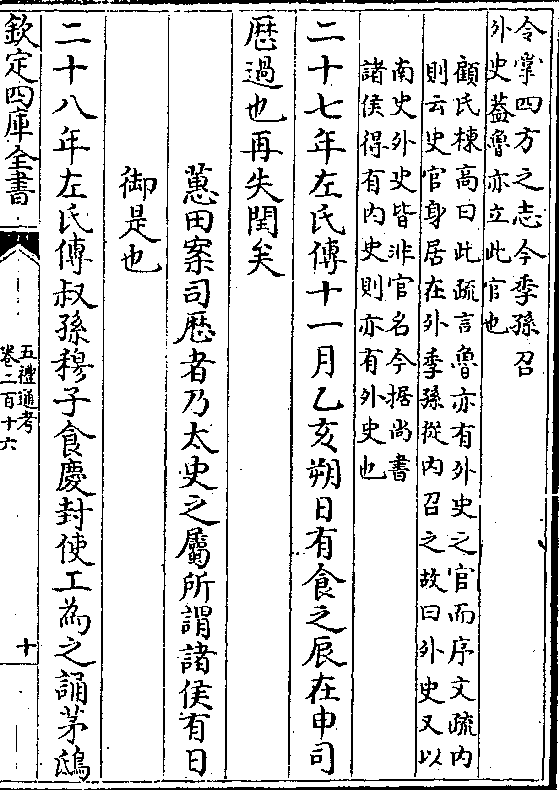 令掌四方之志今季孫召
外史蓋魯亦立此官也
顧氏棟高曰此疏言魯亦有外史之官而序文疏内
則云史官身居在外季孫從内召之故曰外史又以
南史外史皆非官名今据尚書
諸侯得有内史則亦有外史也
二十七年左氏傳十一月乙亥朔日有食之辰在申司
厯過也再失閏矣
蕙田案司厯者乃太史之屬所謂諸侯有日
御是也
二十八年左氏傳叔孫穆子食慶封使工為之誦茅鴟
欽定四庫全書
五禮通考
卷二百十六
十